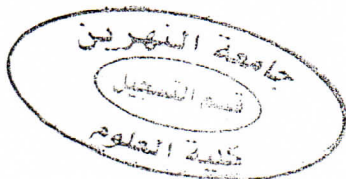 جامعة النهرين
قسم التسجيل
كلية العلوم